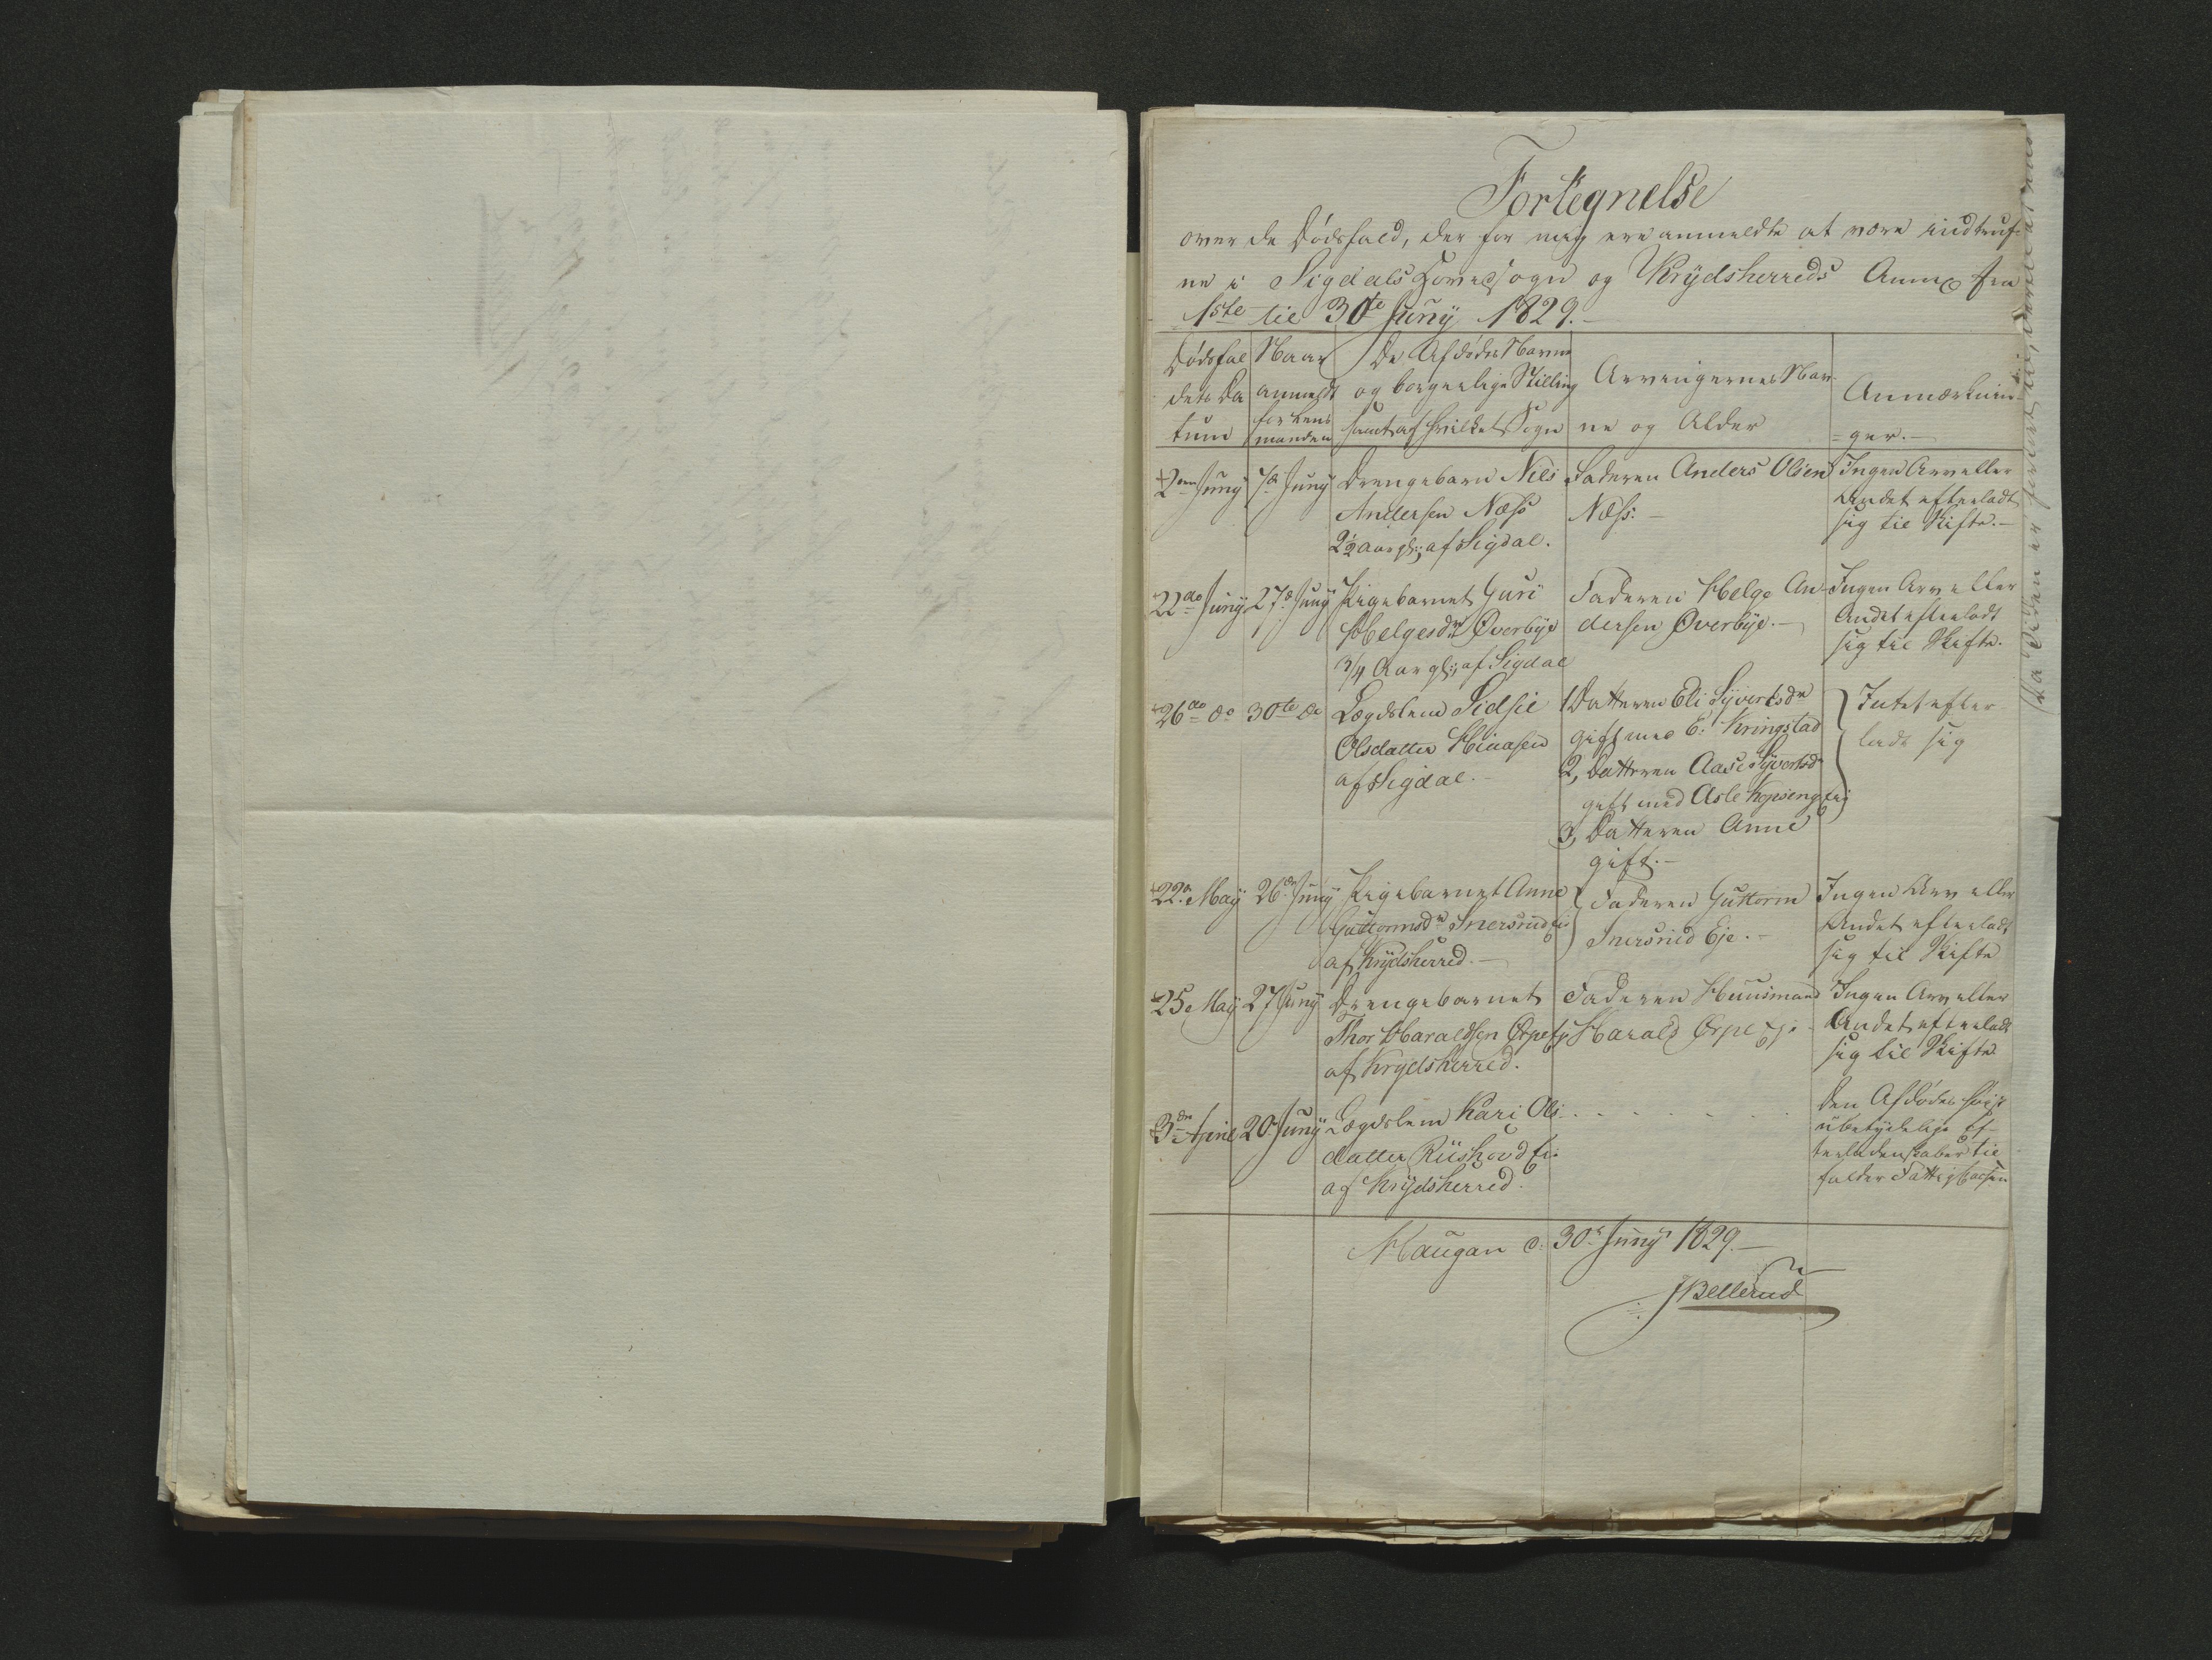 Fortegnelse
over de Dødsfald, der for mig ere anmeldte at være indtruf-
ne i Sigdals Hovedsogn og Krydsherreds Annex fra
1ste til 30te Juny 1829.-
Dødsfal
dets Da
tum
Naar
anmeldt
for Lens
manden
De Afdødes Navne
og borgerlige Stilling
samt af hvilket Sogn
Arvingernes Nav-
ne og Alder
Anmærknin-
=ger.-
2den Juny
7de Juny
Drengebarn Nils
Andersen Næss
2½ aar gl:, af Sigdal.
Faderen Anders Olsen
Næss.-
Ingen Arv eller
Andet efterladt
sig til Skifte.-
22de Juny
27de Juny
Pigebarnet Guri
Helgesdr Øverbye
3/4 Aar gl:, af Sigdal
Faderen Helge An-
dersen Øverbye.-
Ingen Arv eller
Andet efterladt
sig til Skifte.
26de do
30te do
Lægdslem Sidsel
Olsdatter
af Sigdal.-
1 Datteren Eli Syvertsdr
gift med E: Kringstad
2, Datteren Aase Syvertsdr
gift med Asle Kopseng Eie
3, Datteren Anne
gift.-
Intet efter-
ladt sig
22de May
26de Juny
Pigebarnet Anne
Guttormsdr Snersrud Ei
af Krydsherred.-
Faderen Guttorm
Snersrud Eje.-
Ingen Arv eller
Andet efterladt
sig til Skifte
25 May
27 Juny
Drengebarnet
Thor Haraldsen Ørpe Ej
af Krydsherred.
Faderen Huusmand
Harald Ørpe Eje
Ingen Arv eller
Andet efterladt
sig til Skifte
3die April
20 Juny
Lægdslem Kari Ols-
datter Riishovd Ei.
af Krydsherred.
Den Afdødes høist
ubetydelige Ef-
terladenskaber til
falder Fattigkassen
Haugan d: 30te Juny 1829.-
JBellerud